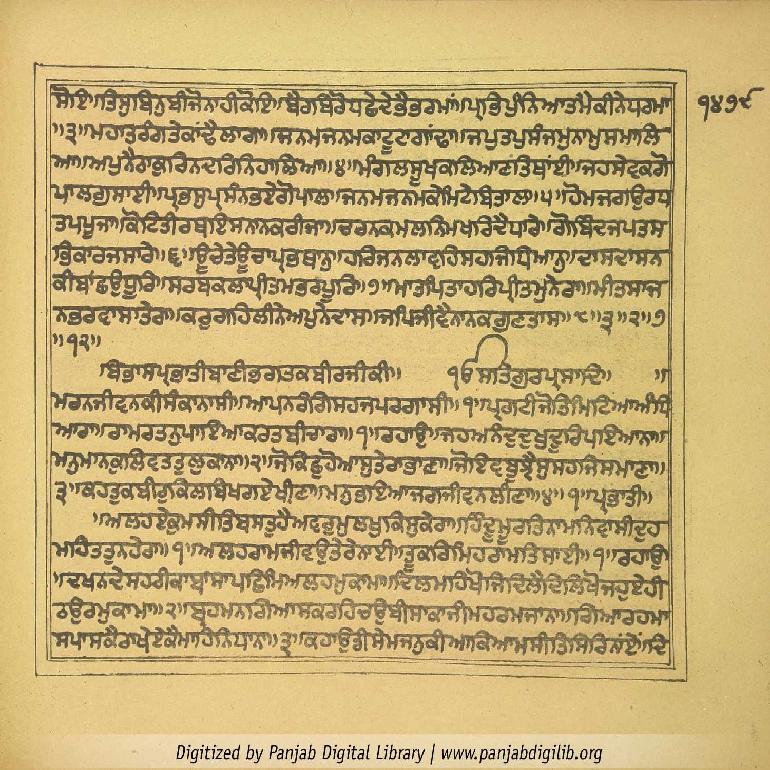 ੧੪੭੯
ਸੋਇ॥ਤਿਸੁਬਿਨੁਬੀਜੋਨਾਹੀਕੋਇ॥ਬੈਰਬਿਰੋਧਛੇਦੇਭੈਭਰਮਾਂ॥ਪ੍ਰਭਿਪੁੰਨਿਆਤਮੈਕੀਨੇਧਰਮਾ
॥੩॥ਮਹਾਤਰੰਗਤੇਕਾਂਢੈਲਾਗਾ॥ਜਨਮਜਨਮਕਾਟੂਟਾਗਾਂਢਾ॥ਜਪੁਤਪੁਸੰਜਮੁਨਾਮੁਸਮਾਲਿ
ਆ॥ਅਪੁਨੈਠਾਕੁਰਿਨਦਰਿਨਿਹਾਲਿਆ॥੪॥ਮੰਗਲਸੂਖਕਲਿਆਣਤਿਥਾਈ॥ਜਹਸੇਵਕਗੋ
ਪਾਲਗੁਸਾਈ॥ਪ੍ਰਭਸੁਪ੍ਰਸੰਨਭਏਗੋਪਾਲ॥ਜਨਮਜਨਮਕੇਮਿਟੇਬਿਤਾਲ॥੫॥ਹੋਮਜਗਉਰਧ
ਤਪਪੂਜਾ॥ਕੋਟਿਤੀਰਥਇਸਨਾਨਕਰੀਜਾ॥ਚਰਨਕਮਲਨਿਮਖਰਿਦੈਧਾਰੇ॥ਗੋਬਿੰਦਜਪਤਸ
ਭਿਕਾਰਜਸਾਰੇ॥੬॥ਊਚੇਤੇਊਚਾਪ੍ਰਭਥਾਨੁ॥ਹਰਿਜਨਲਾਵਹਿਸਹਜਿਧਿਆਨੁ॥ਦਾਸਦਾਸਨ
ਕੀਬਾਂਛਉਧੂਰਿ॥ਸਰਬਕਲਾਪ੍ਰੀਤਮਭਰਪੂਰਿ॥੭॥ਮਾਤਪਿਤਾਹਰਿਪ੍ਰੀਤਮੁਨੇਰਾ॥ਮੀਤਸਾਜ
ਨਭਰਵਾਸਾਤੇਰਾ॥ਕਰੁਗਹਿਲੀਨੇਅਪੁਨੇਦਾਸ॥ਜਪਿਜੀਵੈਨਾਨਕਗੁਣਤਾਸ॥੮॥੩॥੨॥੭
॥੧੨॥
ਬਿਭਾਸਪ੍ਰਭਾਤੀਬਾਣੀਭਗਤਕਬੀਰਜੀਕੀ॥ ੴਸਤਿਗੁਰਪ੍ਰਸਾਦਿ॥ ॥
ਮਰਨਜੀਵਨਕੀਸੰਕਾਨਾਸੀ॥ਆਪਨਰੰਗਿਸਹਜਪਰਗਾਸੀ॥੧॥ਪ੍ਰਗਟੀਜੋਤਿਮਿਟਿਆਅੰਧਿ
ਆਰਾ॥ਰਾਮਰਤਨੁਪਾਇਆਕਰਤਬੀਚਾਰਾ॥੧॥ਰਹਾਉ॥ਜਹਅਨੰਦੁਦੁਖੁਦੂਰਿਪਇਆਨਾ॥
ਮਨੁਮਾਨਕੁਲਿਵਤਤੁਲੁਕਾਨਾ॥੨॥ਜੋਕਿਛੁਹੋਆਸੁਤੇਰਾਭਾਣਾ॥ਜੋਇਵਬੂਝੈਸੁਸਹਜਿਸਮਾਣਾ॥
੩॥ਕਹਤੁਕਬੀਰੁਕਿਲਬਿਖਗਏਖੀਣਾ॥ਮਨੁਭਇਆਜਗਜੀਵਨਲੀਣਾ॥੪॥੧॥ਪ੍ਰਭਾਤੀ॥
॥ਅਲਹੁਏਕੁਮਸੀਤਿਬਸਤੁਹੈਅਵਰੁਮੁਲਖੁਕਿਸੁਕੇਰਾ॥ਹਿੰਦੂਮੂਰਤਿਨਾਮਨਿਵਾਸੀਦੁਹ
ਮਹਿਤਤੁਨਹੇਰਾ॥੧॥ਅਲਹਰਾਮਜੀਵਉਤੇਰੇਨਾਈ॥ਤੂਕਰਿਮਿਹਰਾਮਤਿਸਾਈ॥੧॥ਰਹਾਉ
॥ਦਖਨਦੇਸਹਰੀਕਾਬਾਸਾਪਛਿਮਿਅਲਹਮੁਕਾਮਾ॥ਦਿਲਮਹਿਖੋਜਿਦਿਲੈਦਿਲਿਖੋਜਹੁਏਹੀ
ਠਉਰਮੁਕਾਮਾ॥੨॥ਬ੍ਰਹਮਨਗਿਆਸਕਰਹਿਚਉਬੀਸਾਕਾਜੀਮਹਰਮਜਾਨਾ॥ਗਿਆਰਹਮਾ
ਸਪਾਸਕੈਰਾਖੇਏਕੈਮਾਹਿਨਿਧਾਨਾ॥੩॥ਕਹਾਉਡੀਸੇਮਜਨੁਕੀਆਕਿਆਮਸੀਤਿਸਿਰਨਾਂਏਂ॥ਦਿ
Digitized by Panjab Digital Library | www.panjabdigilib.org